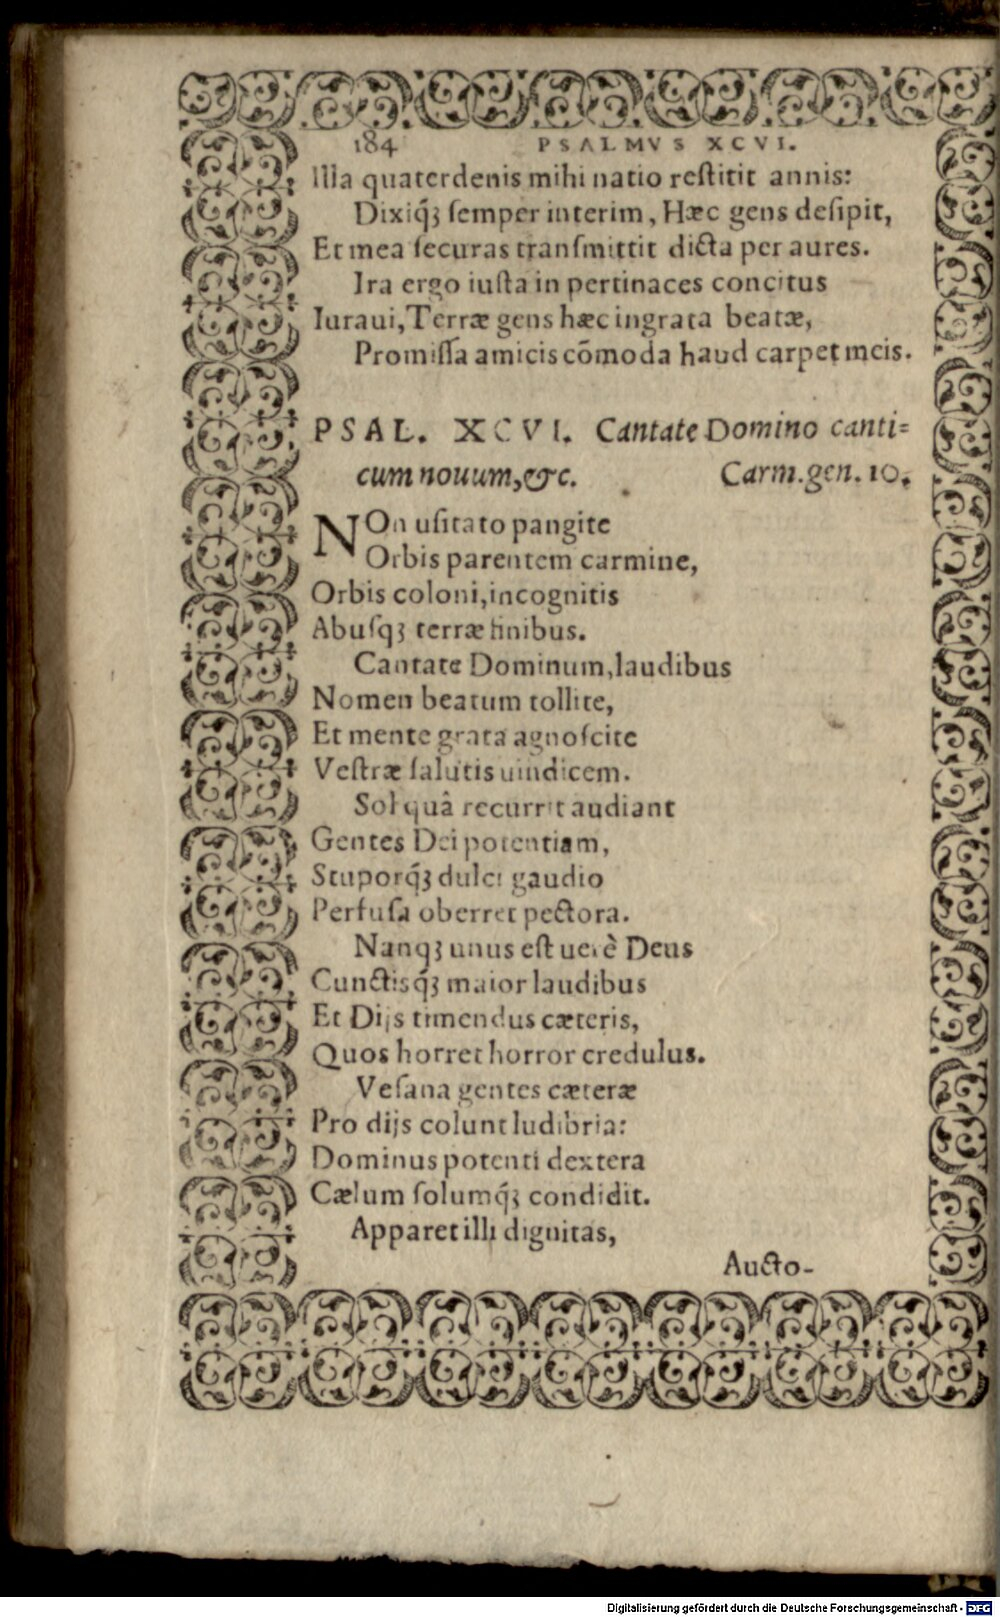 184 PSALMVS XCVI.
Illa quaterdenis mihi natio reſtitit annis:
Dixiq́ꝫ ſemper interim, Hæc gens deſipit,
Et mea ſecuras tranſmittit dicta per aures.
Ira ergo iuſta in pertinaces concitus
Iuraui, Terræ gens hæc ingrata beatæ,
Promiſſa amicis cõmoda haud carpet meis.
PSAL. XCVI. Cantate Domino canti=
cum nouum, &c. Carm. gen. 10.
NOn uſitato pangite
Orbis parentem carmine,
Orbis coloni, incognitis
Abuſqꝫ terræ finibus.
Cantate Dominum, laudibus
Nomen beatum tollite,
Et mente grata agnoſcite
Veſtræ ſalutis uindicem.
Sol quâ recurrit audiant
Gentes Dei potentiam,
Stuporq́ꝫ dulci gaudio
Perfuſa oberret pectora.
Nanqꝫ unus eſt uerè Deus
Cunctisq́ꝫ maior laudibus
Et Dijs timendus cæteris,
Quos horret horror credulus.
Veſana gentes cæteræ
Pro dijs colunt ludibria:
Dominus potenti dextera
Cælum ſolumq́ꝫ condidit.
Apparet illi dignitas,
Aucto-
Digitalisierung gefördert durch die Deutsche Forschungsgemeinschaft - DFG